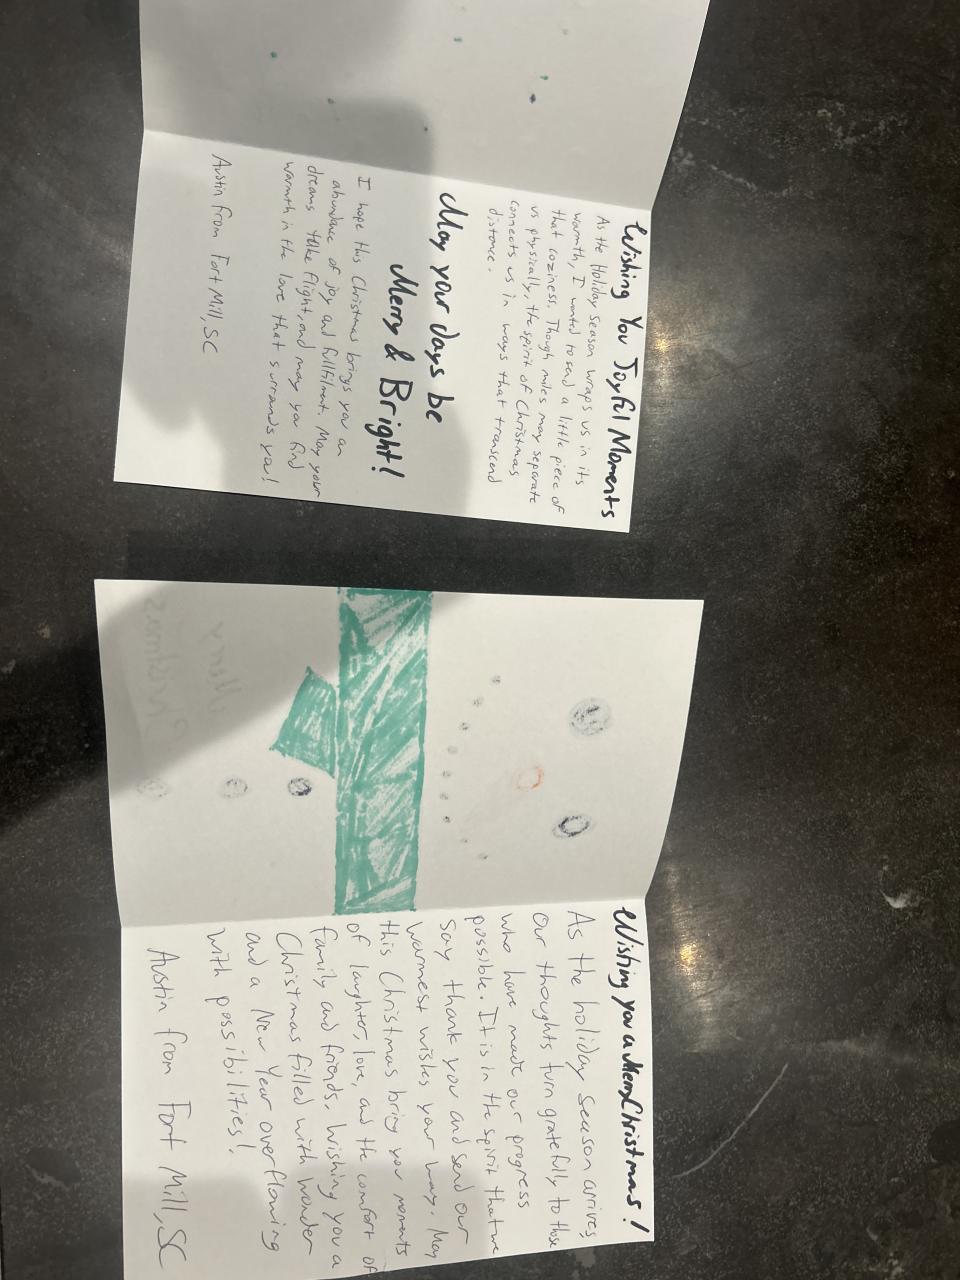 Wishing You Joyful Moments
As the Holiday Season wraps us in its
warmth, I wanted to send a little piece of
that coziness. Though miles may separate
us physically, the spirit of Christmas
connects us in ways that transcend
distance.
May your days be
Merry & Bright!
I hope this Christmas brings you an
abundance of joy and fullfilment. May your
dreams take flight, and may you find
warmth in the love that surrounds you!
Austin from Fort Mill, SC
Wishing you a Merry Christmas!
As the holiday season arrives
our thoughts turn gratefully to those
who have made our progress
possible. It is in the spirit that we
say thank you and send our
warmest wishes your way. May
this Christmas bring you moments
of laughter, love, and the comfort of
family and friends. Wishing you a
Christmas filled with wonder
and a New Year overflowing
with possibilities!
Austin from Fort Mill, SC